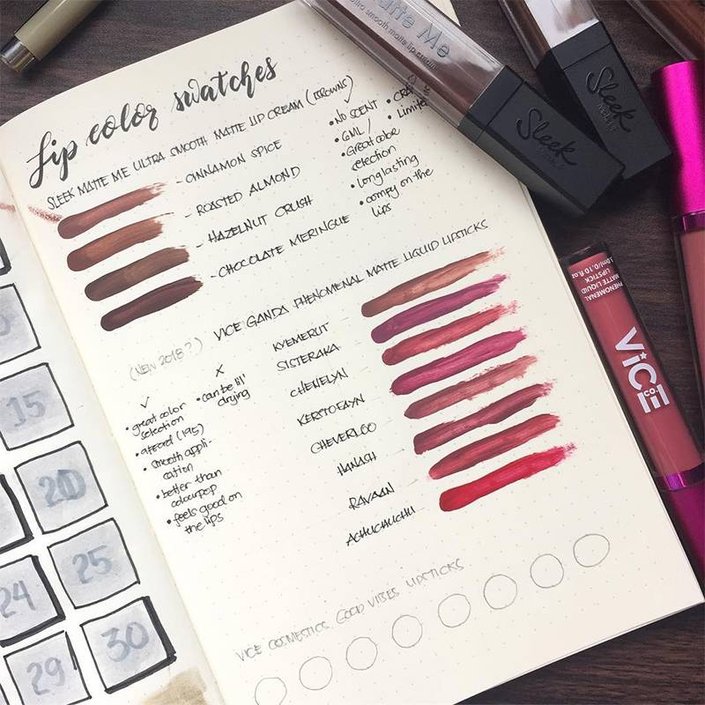 Lip color swatches
SLEEK MATTE ME ULTRA SMOOTH MATTE LIP CREAM (BROWNS)
- CINNAMON SPICE
- ROASTED ALMOND
- HAZELNUT CRUSH
- CHOCOLATE MERINGUE
✓
• NO SCENT
• 6ML /
• Great color
selection
• long lasting
• comfy on the
lips
Limite
VICE GANDA PHENOMENAL MATTE LIQUID LIPSTICKS
(NEW 2018?)
KYEMERUT
SISTERAKA
CHENELYN
KERITOFAYN
GHEVERLOO
HANASH
RAVAAN
ACHUCHUCHU
✓
• great color
selection
• afford (195)
• smooth appli-
cation
• better than
colourpop
• feels good on
the lips
x
• can be lil'
drying
VICE COSMETICS GOOD VIBES LIPSTICKS
15
20
25
24
30
29
Matte Me
Sleek
Sleek
PHENOMENAL
MATTE LIQUID
LIPSTICK
3.0ml/0.10 fl.oz
ViCE
CO.